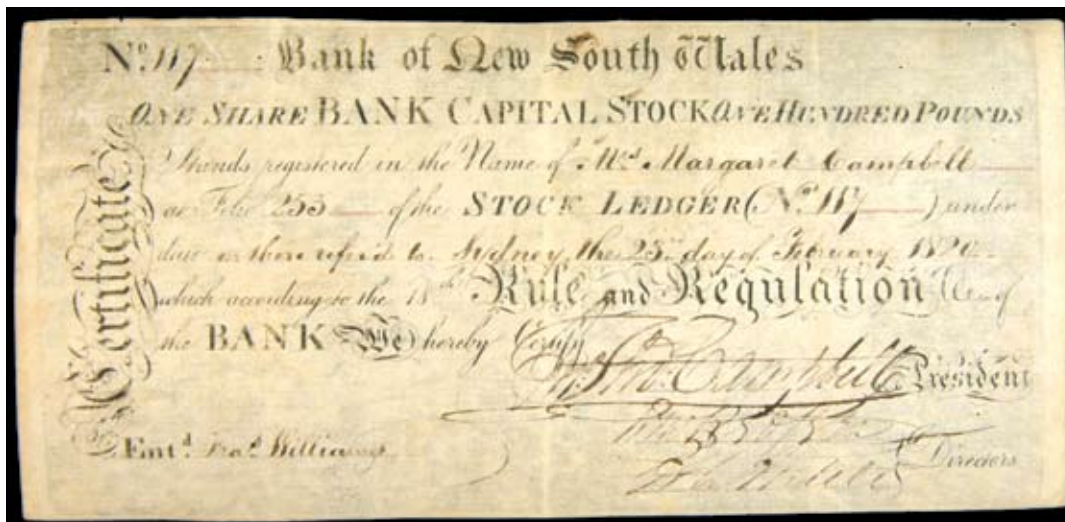 No. 117 Bank of New South Wales
ONE SHARE BANK CAPITAL STOCK ONE HUNDRED POUNDS
Stands registered in the Name of Mrs. Margaret Campbell
as Folio 253 of the STOCK LEDGER (No. 117) under
date as there referred to. Sydney, the 25th day of February 1820
which according to the 18th Rule and Regulation of
the BANK We hereby Certify
Certificate
Campbell President
Entd. Fras. Williams
Directors